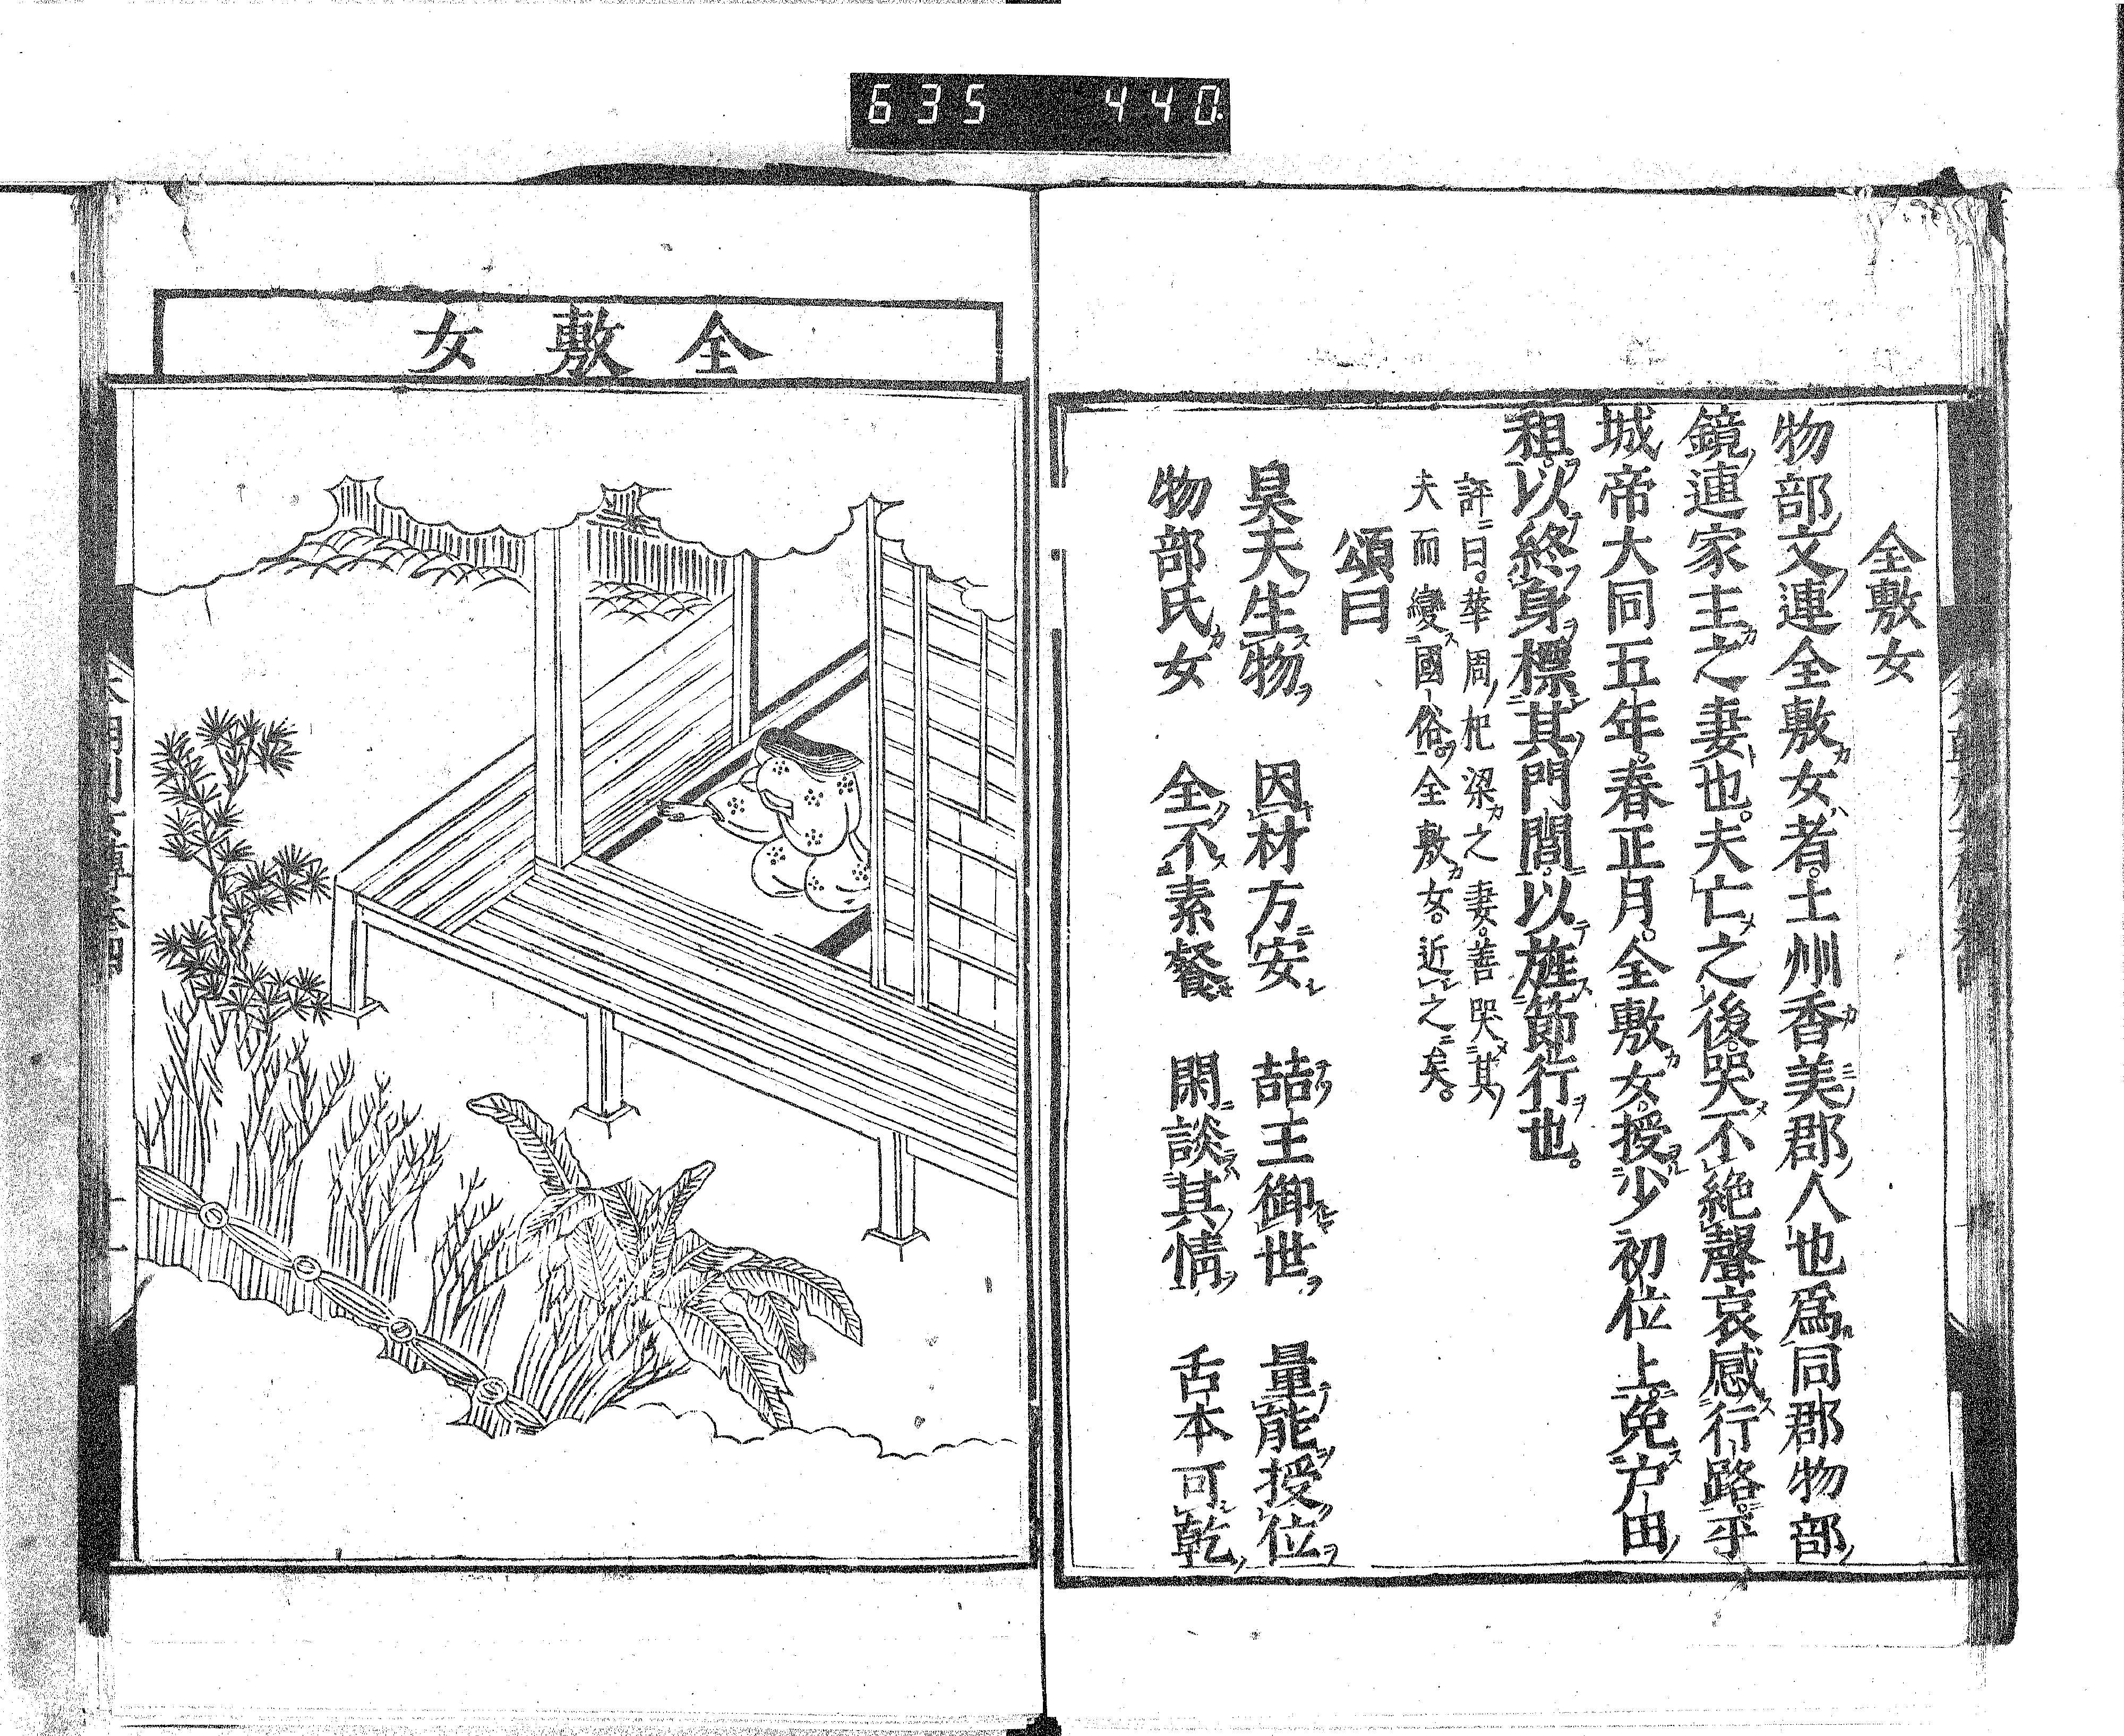 635 440
全敷女
物部文連全敷女者。土州香美郡人也爲同郡物部
鏡連家主之妻也。夫亡之後。哭不絶聲哀感行路。乎
城帝大同五年。春正月。全敷女。授少初位上。免户田
租。以終身標其門閭。以旌節行也。
評曰。華周杞梁之妻。善哭其
夫而變國俗。全敷女。近之矣。
頌曰
昊天生物 因材方安 喆王御世 量能授位
物部氏女 全不素餐 閑談其情 舌本可乾
全敷女